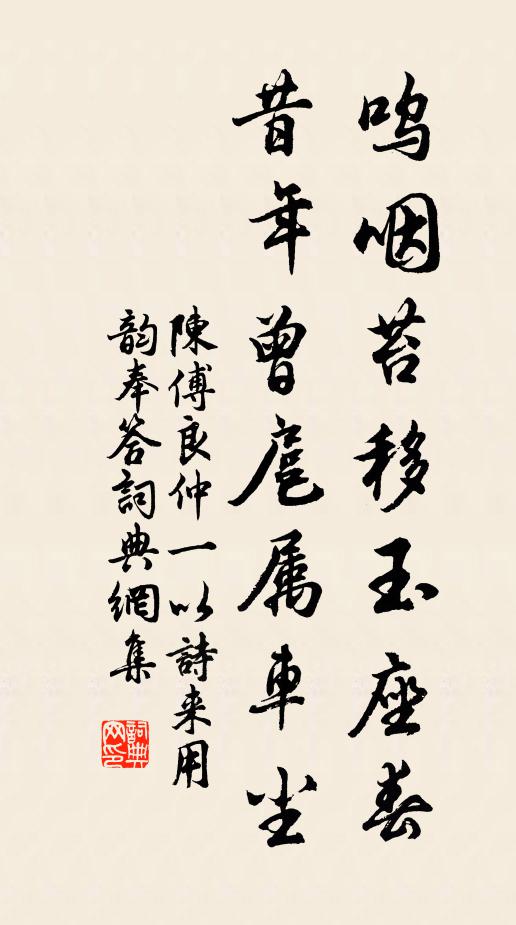 呜咽苔移玉座春
昔年曾扈属車尘
陳傅良仲一以詩来用
韵奉答詞典網集
詞典
网印